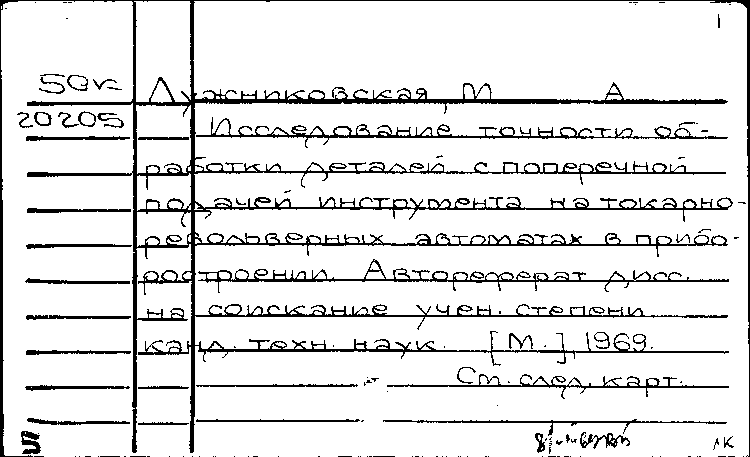 1
50к Лужниковская, М А
20205 Исследование точности об-
работки деталей с поперечной
подачей инструмента на токарно-
револьверных автоматах в прибо-
ростроении. Автореферат дисс.
на соискание учен. степени
канд. техн. наук. [М.], 1969.
См. след. карт.
лк